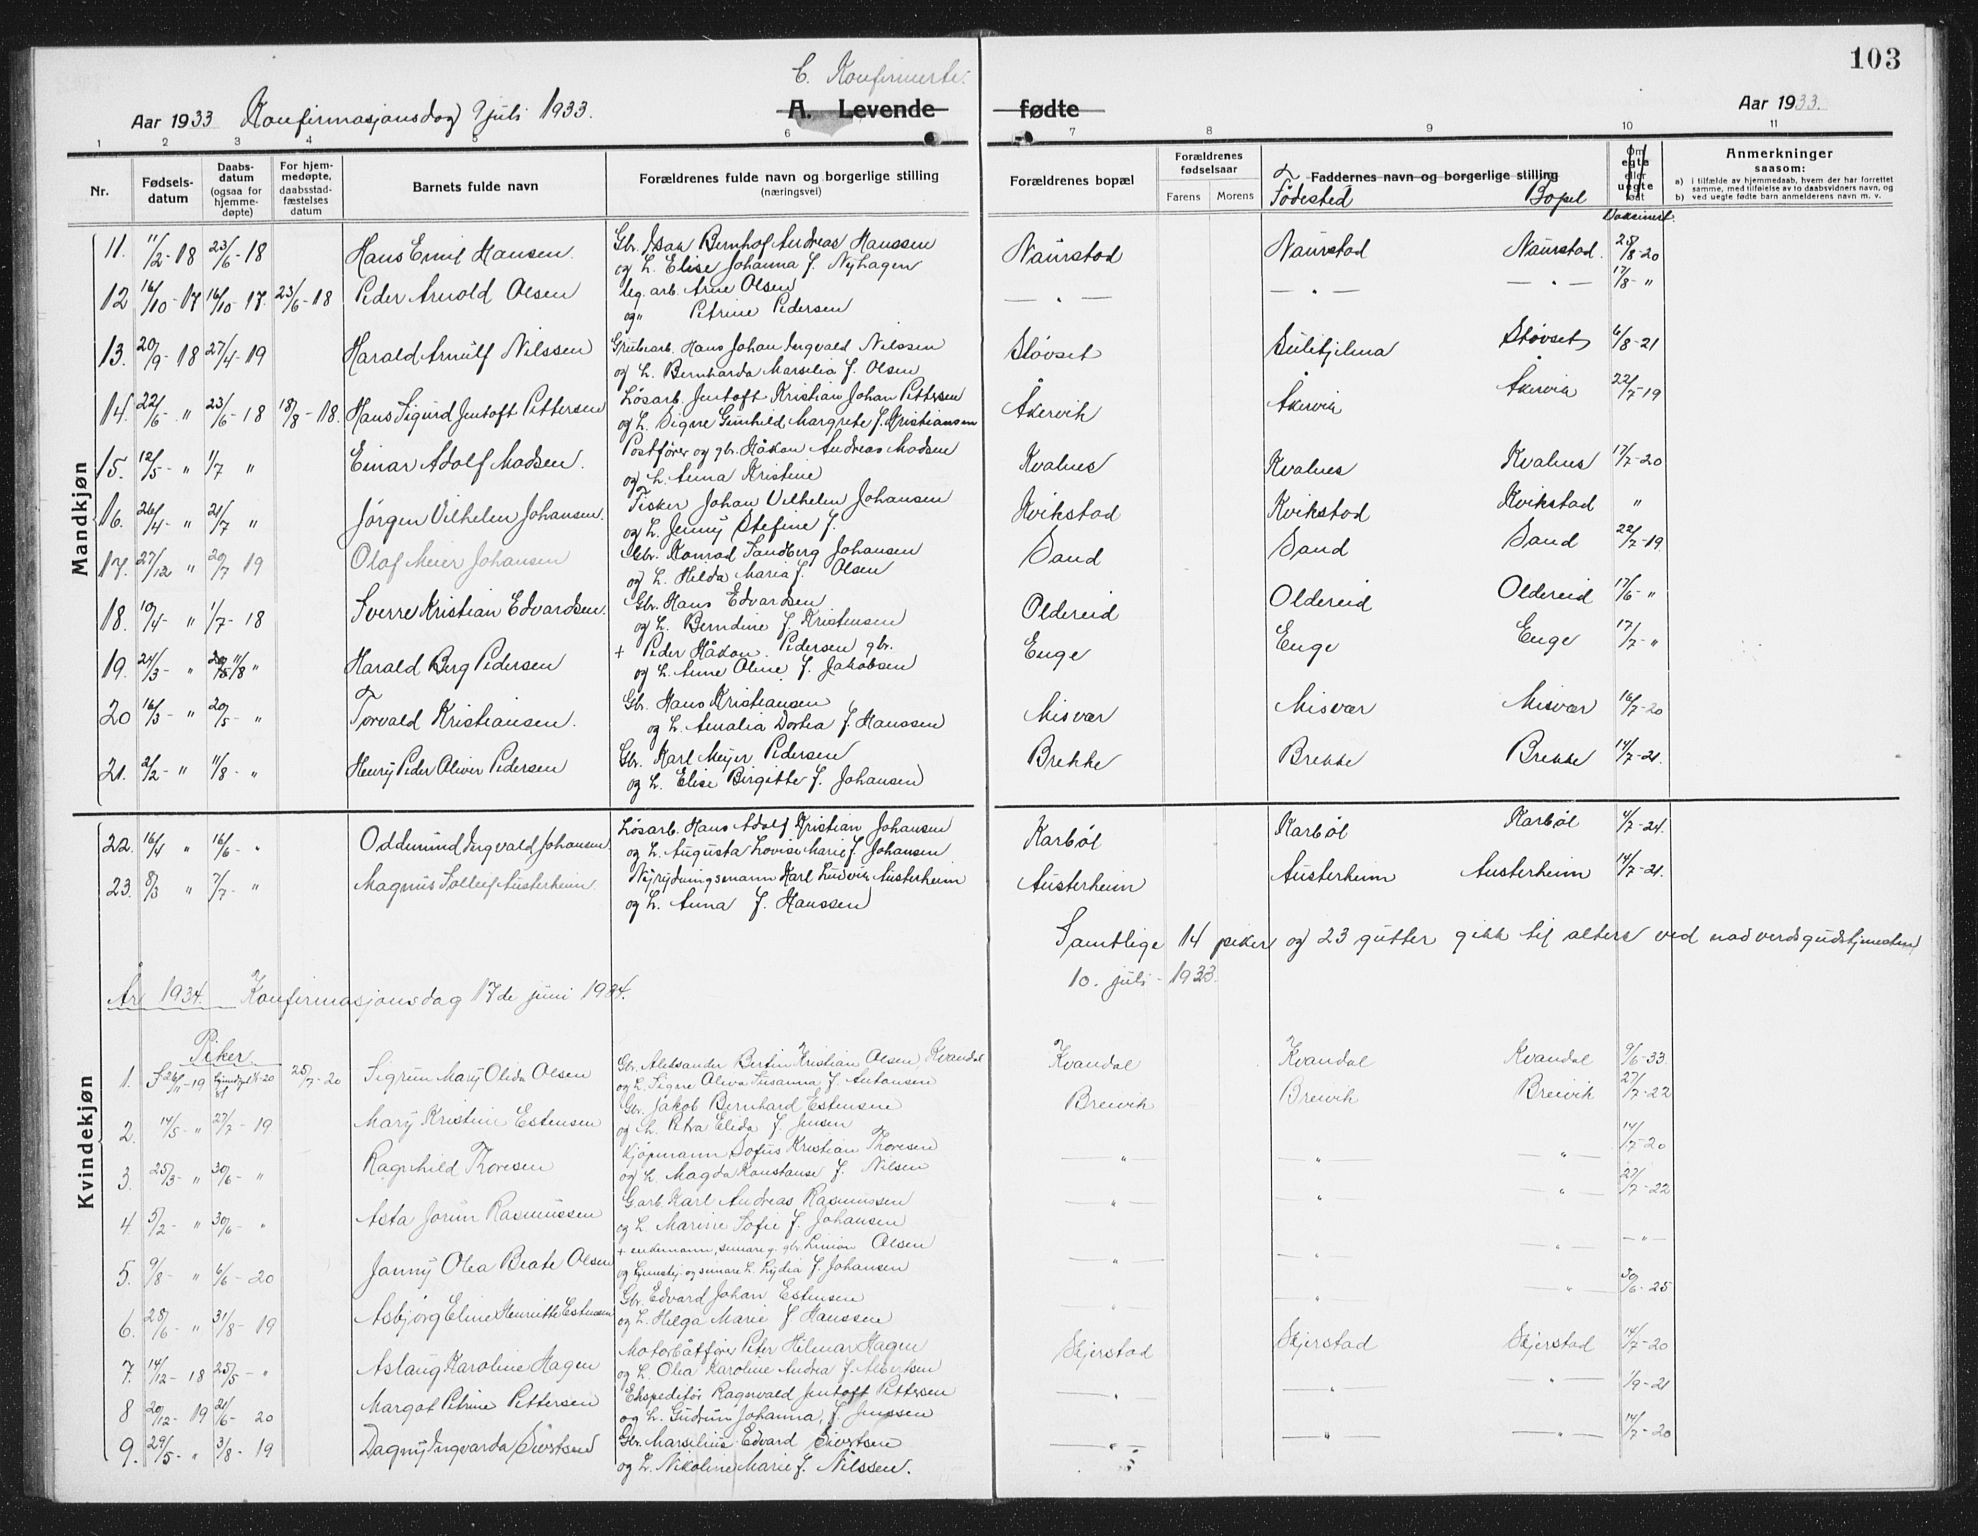 103
C. Konfirmerte.
Aar 1933 Konfirmasjonsdag 9 juli 1933. A. Levende fødte Aar 1933.
1 2 3 4 5 6 7 8 9 10 11
Nr. Fødsels-datum Daabs-datum (ogsaa for hjemme-døpte) For hjem-medøpte, daabsstad-fæstelses datum Barnets fulde navn Forældrenes fulde navn og borgerlige stilling (næringsvei) Forældrenes bopæl Forældrenes fødselsaar Farens Morens Faddernes navn og borgerlige stilling Fødested Bopel Om egte eller uegte født Anmerkninger saasom:
a) i tilfælde av hjemmedaab, hvem der har forrettet samme, med tilføielse av to daabsvidners navn, og
b) ved uegte fødte barn anmelderens navn m. v.
Vaksinert.
Mandkjøn
11. 11/2-18 23/6-18 Hans Emil Hansen. Gbr. Isak Bernhof Andreas Hanssen Naurstad Naurstad Naurstad. 25/8-20
og h. Elise Johanna f. Nyhagen
12 16/10-17 16/10-17. 23/6-18 Peder Arnold Olsen leg. arb. Arne Olsen — " — — " — — " — 17/8- "
og " Petrine Pedersen
13. 20/9-18 27/4-19 Harald Arnulf Nilssen Grubearb. Hans Johan Ingvald Nilssen Støvset Sulitjelma Støvset 6/8-21
og h. Bernharda Marselia f. Olsen
14. 22/6- " 23/6-18 18/8-18. Hans Sigurd Jentoft Pettersen Løsarb. Jentoft Kristian Johan Pettersen Åkervik Åkervik Åkervik 22/7-19
og h. Signe Gunhild Margrete f. Kristiansen
15. 12/5- " 1/7 " Einar Adolf Madsen. Postfører og gbr. Håkon Andreas Madsen Kvalnes Kvalnes Kvalnes 17/7-20
og h. Anna Kristine
16. 26/4- " 21/7 " Jørgen Vilhelm Johansen. Fisker Johan Vilhelm Johansen Kvikstad Kvikstad Kvikstad "
og h. Jenny Stefine f.
17. 27/12 " 20/7 19 Olaf Meier Johansen Gbr. Konrad Sandberg Johansen Sand Sand Sand 22/7-19.
og h. Hilda Maria f. Olsen
18. 19/4- " 1/7-18 Sverre Kristian Edvardsen. Gbr. Hans Edvardsen Oldereid Oldereid Oldereid 17/6- "
og h. Berndine f. Kristensen
19. 24/3- " 11/8 " Harald Berg Pedersen + Peder Håkon Pedersen gbr. Enge Enge Enge 17/7- "
og h. Anne Oline f. Jakobsen
20 16/3- " 20/5- " Torvald Kristiansen. Gbr. Hans Kristiansen Misvær Misvær Misvær 16/7-20
og h. Amalia Dortea f. Hanssen
21. 2/2- " 11/8- " Henry Peder Oliver Pedersen Gbr. Karl Meyer Pedersen Brekke Brekke Brekke 14/7-21.
og h. Elise Birgitte f. Johansen
Kvindekjøn
22. 16/4 " 16/6- " Oddmund Ingvald Johansen Løsarb. Hans Adolf Kristian Johansen Karbøl Karbøl Karbøl 4/7-24.
og h. Augusta Lovise Marie f. Johansen
23. 8/3 " 7/7- " Magnus Solleif Austerheim. Nyrydningsmann Karl Ludvik Austerheim Austerheim Austerheim Austerheim 14/7-21.
og h. Anna f. Hanssen
Samtlige 14 piker og 23 gutter gikk til alters ved nadverdsgudstjenesten
10. juli 1933.
År 1934. Konfirmasjonsdag 17de juni 1934.
Piker
1. 26/11-19 25/7-20 Sigrun Mary Olida Olsen Gbr. Aleksander Bertin Kristian Olsen Kvandal Kvandal Kvandal Kvandal 9/6-33
og h. Signe Oliva Susanna f. Antonsen
2. 14/5- " 27/7-19 Mary Kristine Estensen Gbr. Jakob Bernhard Estensen Breivik Breivik Breivik 27/7-22
og h. Petra Elida f. Jensen
3. 25/3- " 30/6- " Ragnhild Thoresen Kjøpmann Sofus Kristian Thoresen — " — — " — — " — 14/7-20
og h. Magda Konstanse f. Nilsen
4. 5/2- " 30/6- " Asta Jorun Rasmussen G.arb. Karl Andreas Rasmussen — " — — " — — " — 27/7-22
og h. Marine Sofie f. Johansen
5. 9/8- " 6/6-20 Janny Olea Beate Olsen + enkemann, senere g. gbr. Simon Olsen — " — — " — — " — — " —
og tjenestej. og senere h. Lydia f. Johansen
6. 28/6- " 31/8-19 Asbjørg Eline Henriette Estensen Gbr. Edvard Johan Estensen " " — " — 30/6-25
og h. Helga Marie f. Hanssen
7. 14/12-18 25/5- " Aslaug Karoline Hagen Motorbåtfører Peter Hilmar Hagen Skjerstad Skjerstad Skjerstad 14/7-20
og h. Olea Karoline Andrea f. Albertsen
8 20/12-19 21/6-20 Margot Petrine Pettersen Ekspeditør Ragnvald Jentoft Pettersen — " — — " — — " — 1/9-21
og h. Gudrun Johanna, f. Jenssen
9. 29/5- " 3/8-19 Dagny Ingvarda Sivertsen Gbr. Marselius Edvard Sivertsen — " — — " — — " — 14/7-20
og h. Nikoline Marie f. Nilssen.